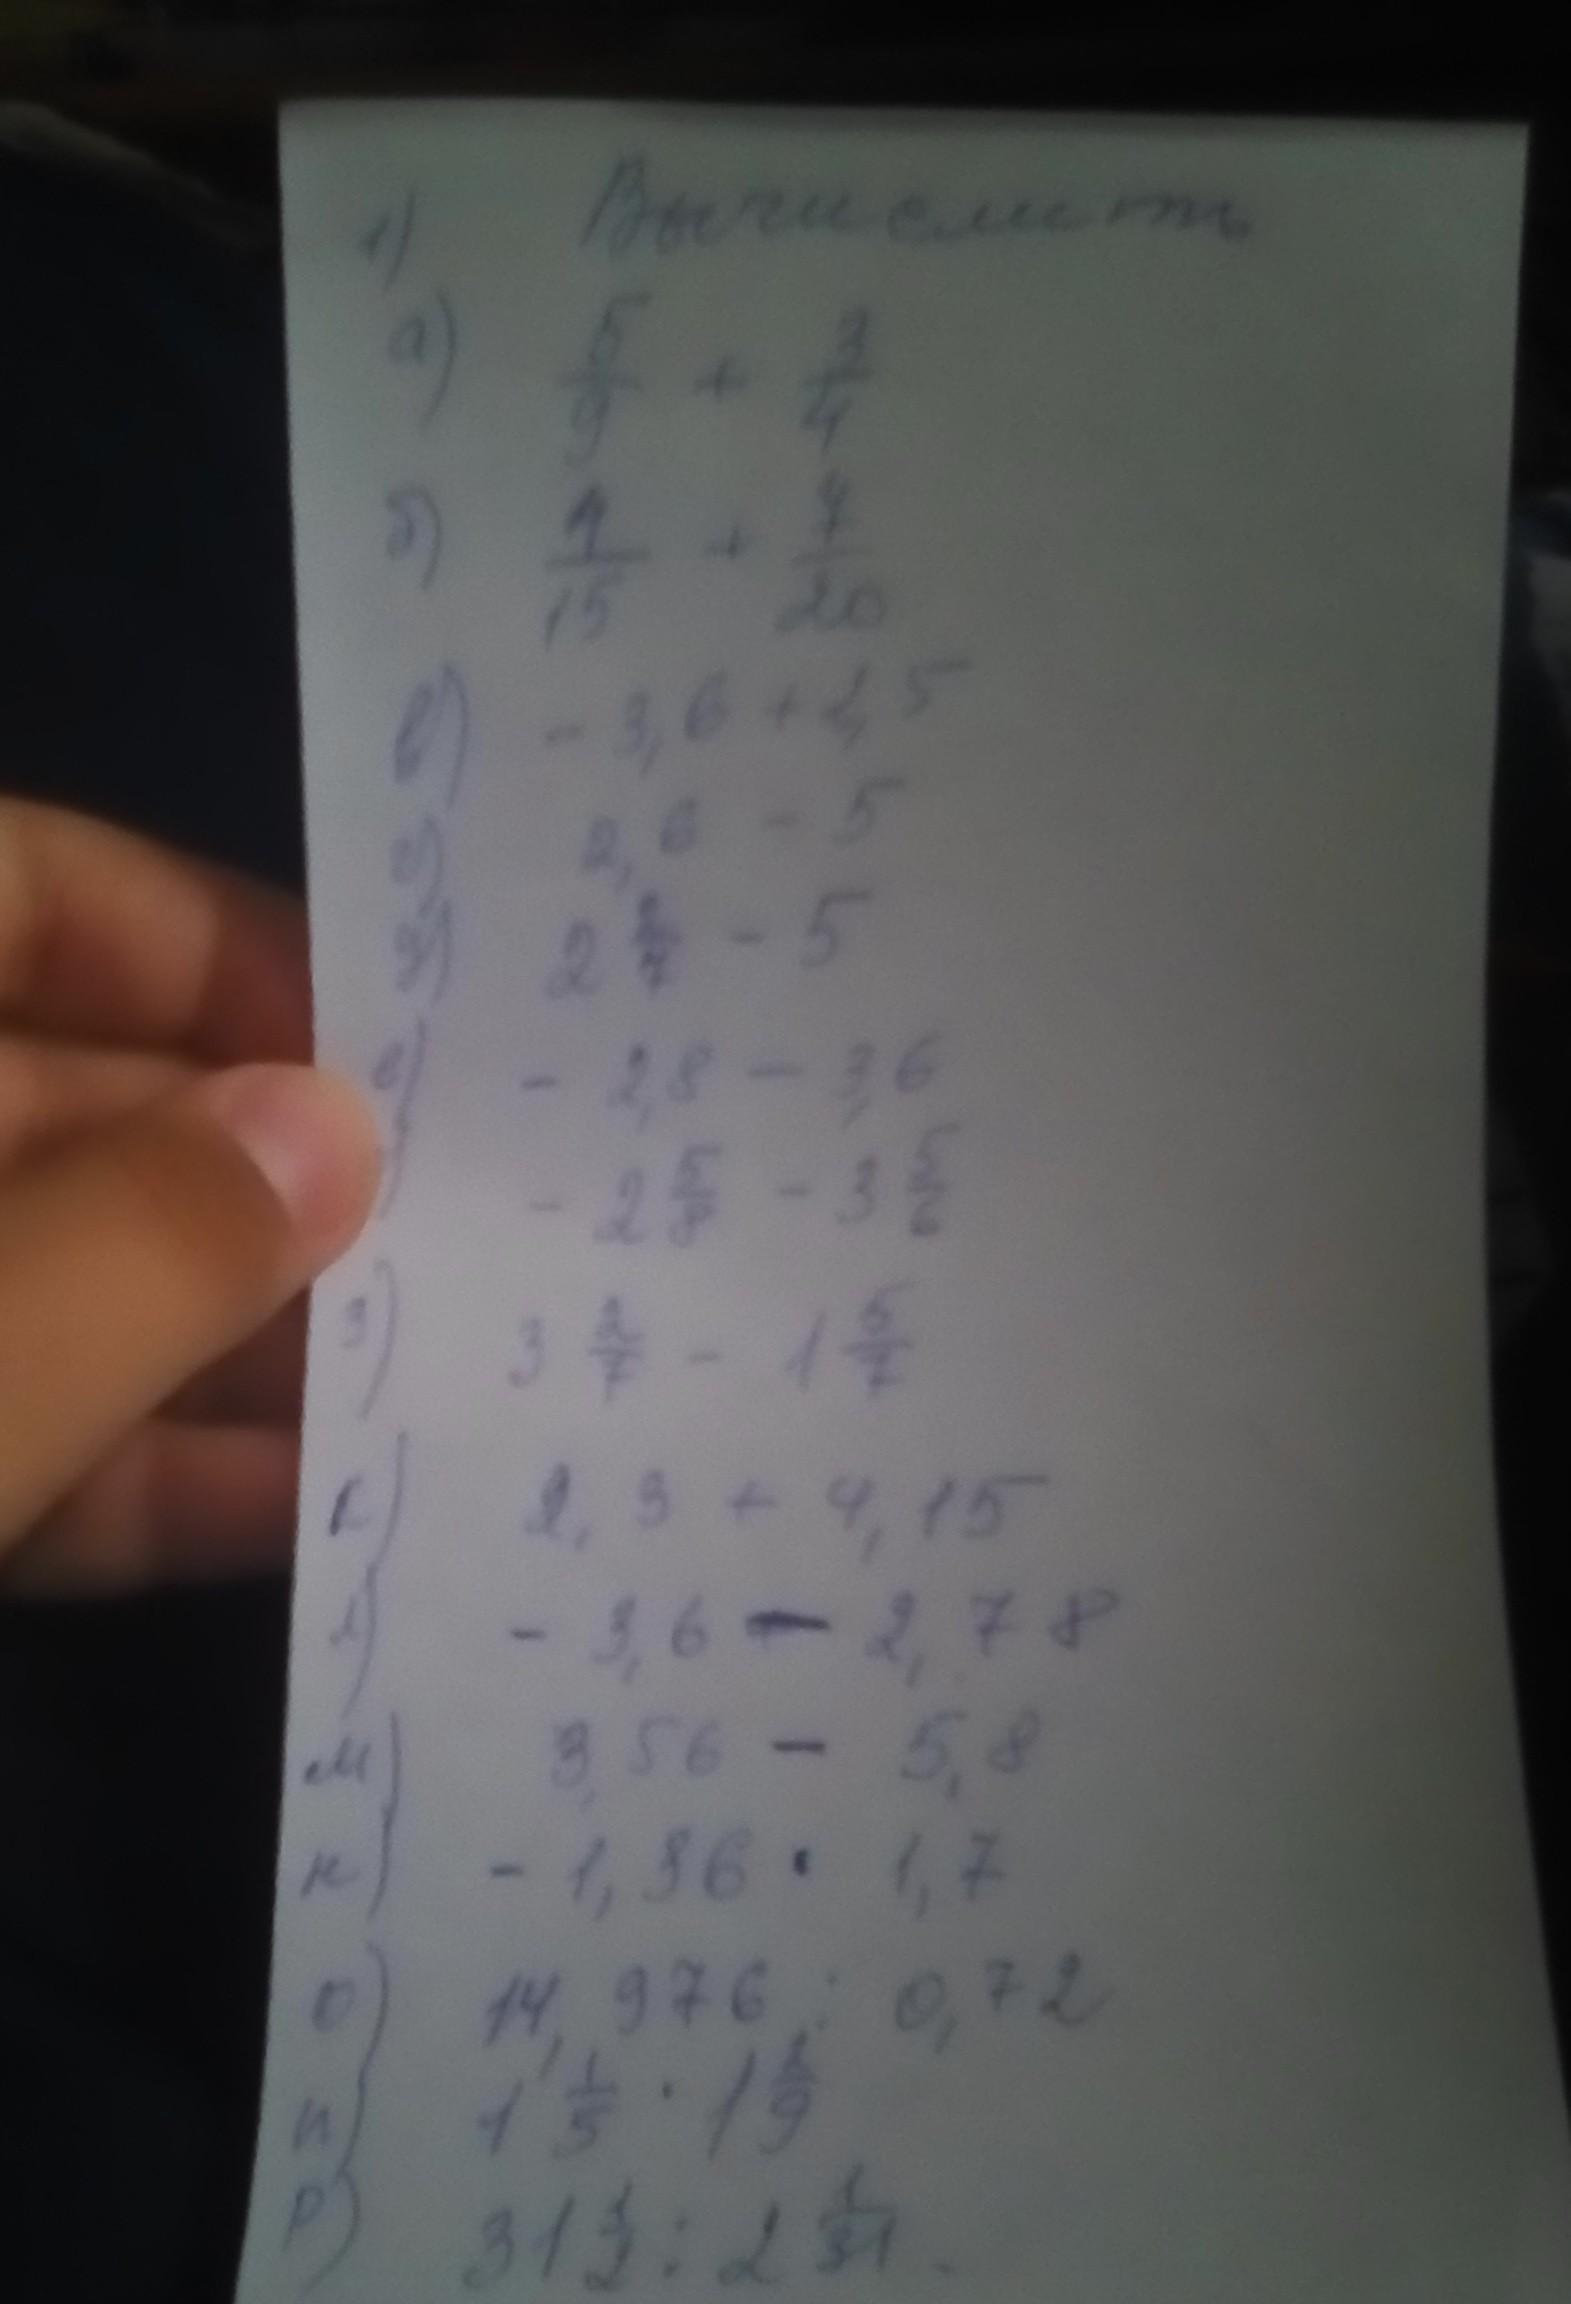 1) Вычислить
а) 5/9 + 3/4
б) 4/15 + 7/20
в) - 3,6 + 1,5
г) 2,6 - 5
д) 2 2/7 - 5
е) - 2,8 - 3,6
) - 2 5/8 - 3 5/6
з) 3 2/7 - 1 5/7
к) 2,3 + 4,15
л) - 3,6 - 2,78
м) 3,56 - 5,8
н) - 1,36 · 1,7
о) 14,976 : 0,72
п) 1 1/5 · 1 1/9
р) 31 1/2 : 2 1/31.